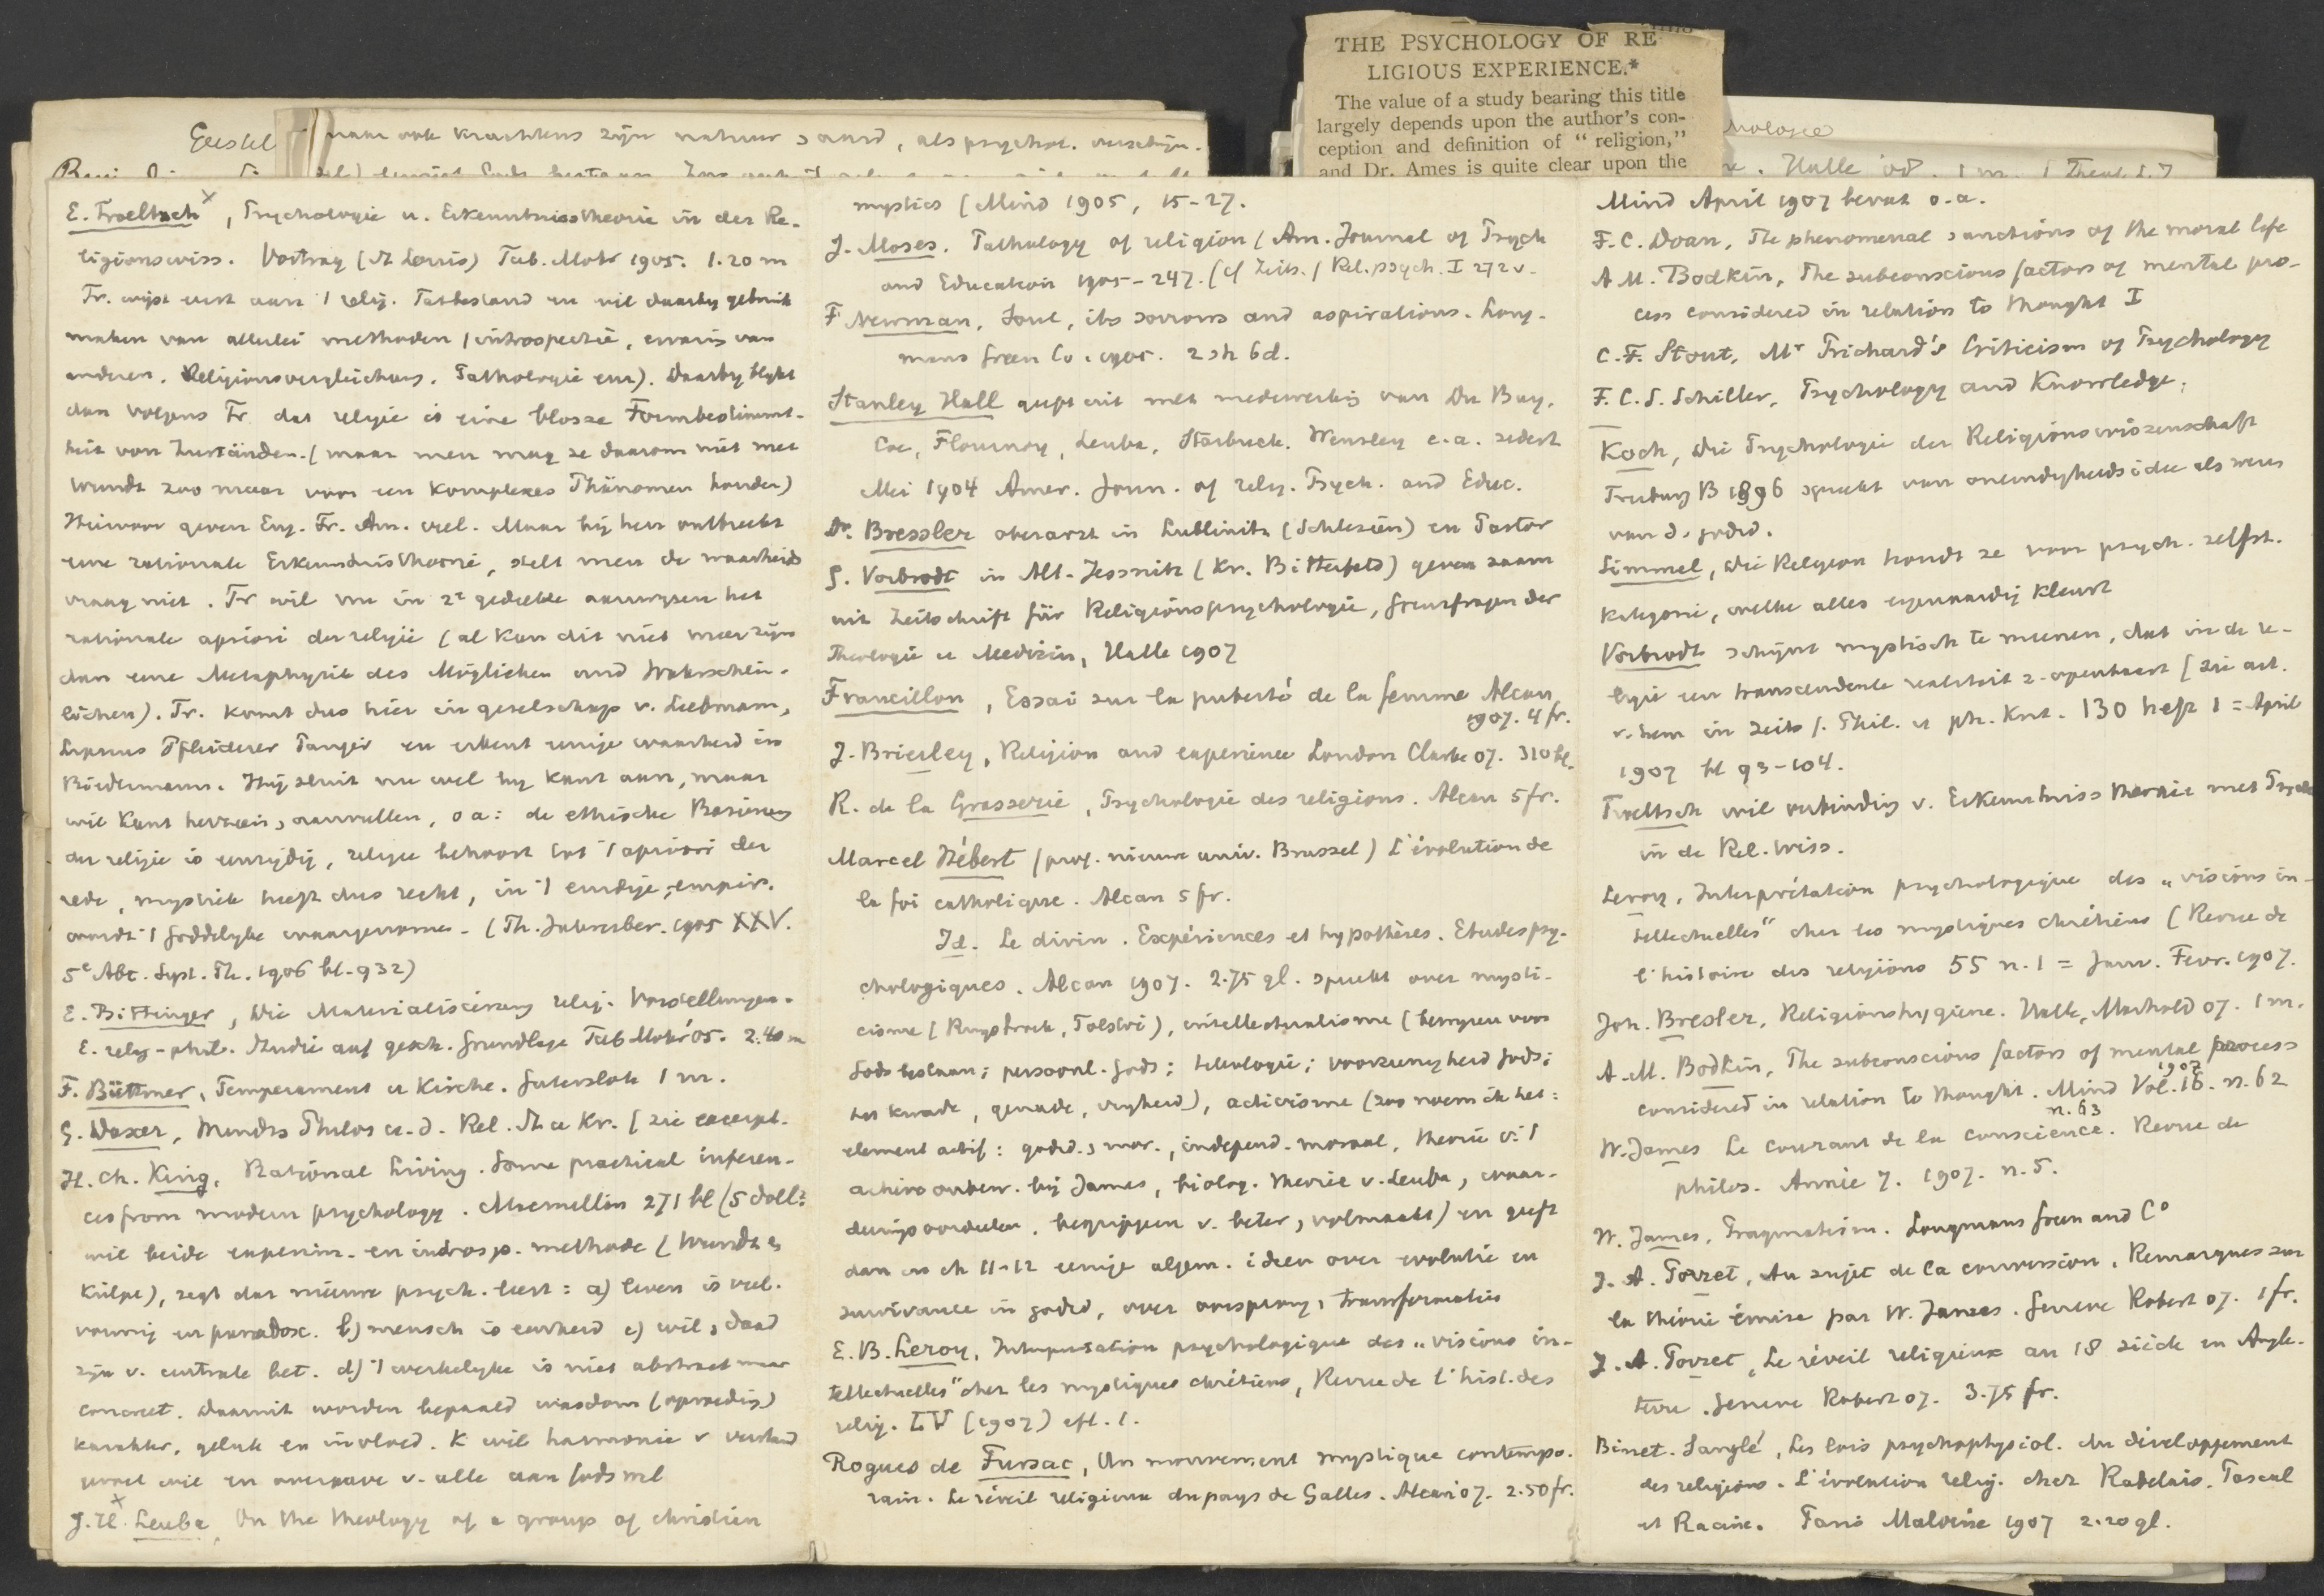 THE PSYCHOLOGY OF RE
LIGIOUS EXPERIENCE.*
The value of a study bearing this title
largely depends upon the author's con-
ception and definition of "religion,"
and Dr. Ames is quite clear upon the
Geestel
maar ook krachtens zijn natuur & aard, als psychol. verschijn.
Halle '08. 1 m.
E. Troeltsch, Psychologie u. Erkenntnisstheorie in der Re-
ligionswiss. Vortrag (St Louis) Tub. Mohr 1905. 1.20 m
Tr. wijst eerst aan 't relig. Tatbestand en wil daarbij gebruik
maken van allerlei methoden (introspectie, ervaring van
anderen, Religionsvergleichung, Pathologie enz). Daarbij blijkt
dan volgens Tr dat religie is eine blosse Formbestimmt-
heit von Zuständen. (maar men mag ze daarom niet met
Wundt zoo maar voor een komplexes Phänomen houden)
Hiervoor geven Eng. Fr. Am. veel. Maar bij hen ontbreekt
eene rationale Erkenntnistheorie, stelt men de waarheids
vraag niet. Tr wil nu in 2e gedeelte aanwijzen het
rationale apriori der religie (al kan dit niet meer zijn
dan eene Metaphysik des Möglichen und Wahrschein-
lichen). Tr. komt dus hier in gezelschap v. Liebmann,
Lipsius Pfleiderer en erkent eenige waarheid in
Biedermann. Hij sluit nu wel bij Kant aan, maar
wil Kant herzien, aanvullen, o a: de ethische Basirung
der religie is eenzijdig, religie behoort tot 't apriori der
rede, mystiek heeft dus recht, in 't eindige, empir.
wordt 't Goddelijke waargenomen. (Th. Jahresber. 1905 XXV.
5e Abt. Syst. Th. 1906 bl. 932)
E. Bittinger, Die Materialisierung relig. Vorstellungen.
E. relig-phil. Studie auf gesch. Grundlage Tub Mohr '05. 2.40 m
F. Büttner, Temperament u Kirche. Gutersloh 1 m.
G. Daxer, Wundts Philos u. d. Rel. St u Kr. (zie excerpt.
H. Ch. King, Rational Living. Some practical inferen-
ces from modern psychology. Macmillan 271 bl (5 doll?
wil beide experim. en introsp. methode (Wundt &
Külpe), zegt dat nieuwe psych. leert: a) leven is veel-
vormig en paradox. b) mensch is eenheid c) wil & daad
zijn v. centrale bet. d) 't werkelijke is niet abstract maar
concreet. Daaruit worden bepaald wasdom (opvoeding)
karakter, geluk en invloed. K wil harmonie v verstand
gevoel wil en overgave v. alle aan Gods wil
J. H. Leuba, On the theology of a group of christian
mystics (Mind 1905, 15-27.
J. Moses. Pathology of religion (Am. Journal of Psych
and Education 1905-247. (cf Zeits. f Rel.psych. I 272 v.
F Newman, Soul, its sorrows and aspirations. Long-
mans Green Co. 1905. 2 sh 6d.
Stanley Hall geeft uit met medewerking van Du Buy,
Coe, Flournoy, Leuba, Starbuck, Wensley e.a. sedert
Mei 1904 Amer. Journ. of relig. Psych. and Educ.
Dr. Bressler oberarzt in Lublinitz (Schlesien) en Pastor
G. Vorbrodt in Alt-Jessnitz (Kr. Bitterfeld) geven saam
uit Zeitschrift für Religionspsychologie, Grenzfragen der
Theologie u Medizin, Halle 1907
Francillon, Essai sur la puberté de la femme Alcan
1907. 4 fr.
J. Brierley, Religion and experience London Clarke 07. 310 bl.
R. de la Grasserie, Psychologie des religions. Alcan 5 fr.
Marcel Hébert (prof. nieuwe univ. Brussel) L'évolution de
la foi catholique. Alcan 5 fr.
Id. Le divin. Expériences et hypothèses. Etudes psy-
chologiques. Alcan 1907. 2.75 gl. spreekt over mysti-
cisme (Ruysbroek, Tolstoi), intellectualisme (bewijzen voor
Gods bestaan; persoonl. Gods; teleologie; voorzienigheid Gods;
het kwade, genade, vrijheid), activisme (zoo noem ik het:
element actif: godsd. & mor., independ. moraal, theorie v. 't
achtero onbew. bij James, biolog. theorie v. Leuba, waar-
deeringsoordeelen, begrippen v. beter, volmaakt) en geeft
dan in ch 11-12 eenige algem. ideen over evolutie en
survivance in godsd, over oorsprong & transformatie
E. B. Leroy, Interpretation psychologique des „visions in-
tellectuelles" chez les mystiques chrétiens, Revue de l'hist. des
relig. LV (1907) afl. 1.
Rogues de Fursac, Un mouvement mystique contempo-
rain. Le réveil religieux du pays de Galles. Alcan 07. 2.50 fr.
Mind April 1907 bevat o.a.
F. C. Doan, The phenomenal sanctions of the moral life
A M. Bodkin, The subconscious factors of mental pro-
cess considered in relation to thought I
C. F. Stout, Mr Prichard's Criticism of Psychology
F. C. S. Schiller, Psychology and Knowledge.
Koch, Die Psychologie der Religionswissenschaft
Freiburg B 1896 spreekt van oneindigheidsidee als wezen
van d. godsd.
Simmel, Die Religion houdt ze voor psych. zelfst.
kategorie, welke alles eigenaardig kleurt
Vorbrodt schijnt mystisch te meenen, dat in de re-
ligie een transcendente realiteit z. openbaart (zie art.
v. hem in Zeits f. Phil. u ph. Krit. 130 heft 1 = April
1907 bl 93-104.
Troeltsch wil verbinding v. Erkenntnisstheorie met Psych
in de Rel. Wiss.
Leroy, Interprétation psychologique des „visions in-
tellectuelles" chez les mystiques chrétiens (Revue de
l'histoire des religions 55 n. 1 = Janv. Fevr. 1907.
Joh. Bresler, Religionshygiene. Halle, Marhold 07. 1 m.
A. M. Bodkin, The subconscious factors of mental process
considered in relation to thought. Mind 1907 Vol. 16. n. 62
n. 63
W. James Le courant de la conscience. Revue de
philos. Année 7. 1907. n. 5.
W. James, Pragmatism. Longmans Green and Co
J. A. Porret, Au sujet de la conversion, Remarques sur
la théorie émise par W. James. Geneve Robert 07. 1 fr.
J. A. Porret, Le réveil religieux au 18 siècle en Angle-
terre. Geneve Robert 07. 3.75 fr.
Binet-Sanglé, Les lois psychophysiol. du développement
des religions. L'évolution relig. chez Rabelais, Pascal
et Racine. Paris Maloine 1907 2.20 gl.